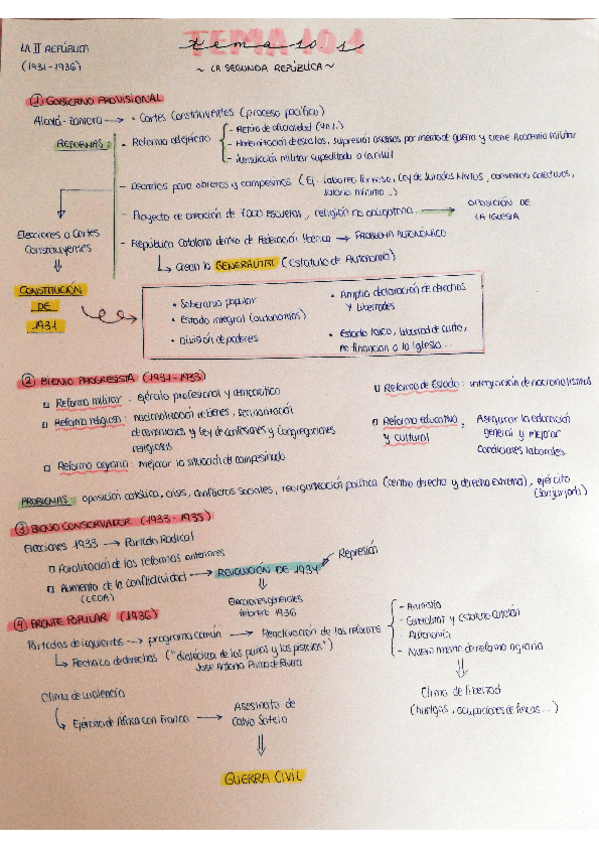 LA II REPÚBLICA
(1931-1936)
TEMA 10.1
tema 10.1
~ LA SEGUNDA REPÚBLICA ~
① GOBIERNO PROVISIONAL
Alcalá-Zamora → • Cortes Constituyentes (proceso pacífico)
REFORMAS: • Reforma del ejército
- Retiro de oficialidad
- Modernización de escalas, supresión ascensos por méritos de guerra y cierre Academia militar
- Jurisdicción militar supeditada a la civil
- Decretos para obreros y campesinos (Ej. Laboreo Forzoso, Ley de Jurados Mixtos, convenios colectivos,
salario mínimo...)
- Proyecto de creación de 7000 escuelas, religión no obligatoria... → OPOSICIÓN DE
LA IGLESIA
- República Catalana dentro de Federación Ibérica → PROBLEMA AUTONÓMICO
↳ Crean la GENERALITAT (Estatuto de Autonomía)
Elecciones a Cortes
Constituyentes
CONSTITUCIÓN
DE
1931
• Soberanía popular
• Estado integral (autonomías)
• División de poderes
• Amplia declaración de derechos
y libertades
• Estado laico, libertad de culto,
no financian a la Iglesia...
② BIENIO PROGRESISTA (1931-1933)
Reforma militar: ejército profesional y democrático
Reforma religiosa: nacionalización de bienes, secularización
de cementerios y Ley de confesiones y Congregaciones
religiosas
Reforma agraria: mejorar la situación de campesinado
Reforma de Estado: integración de nacionalismos
Reforma educativa
y cultural: Asegurar la educación
general y mejorar
condiciones laborales
PROBLEMAS: oposición católica, crisis, conflictos sociales, reorganización política (centro derecha y derecha extrema), ejército
(Sanjurjada)
③ BIENIO CONSERVADOR (1933-1935)
Elecciones 1933 → Partido Radical
Paralización de las reformas anteriores
Aumento de la conflictividad → REVOLUCIÓN DE 1934
(CEDA)
Represión
Elecciones generales
febrero 1936
④ FRENTE POPULAR (1936)
Partidos de izquierdas → programa común → Reactivación de las reformas
- Amnistía
- Generalitat y Estatuto Catalán
Autonomía
- Nuevo intento de reforma agraria
↳ Rechazo de derechas ("dialéctica de los puños y las pistolas")
José Antonio Primo de Rivera
Clima de libertad
(huelgas, ocupaciones de fincas...)
Clima de violencia
↳ Ejército de África con Franco → Asesinato de
Calvo Sotelo
GUERRA CIVIL